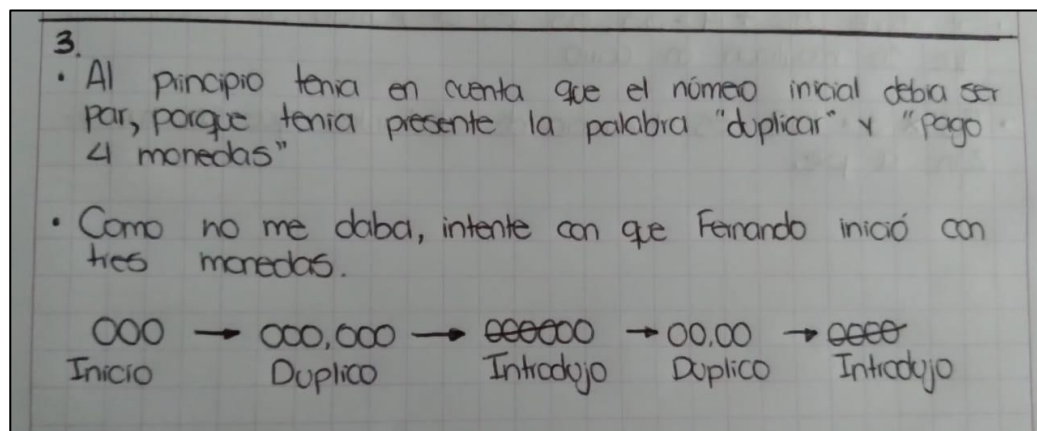 3.
• Al principio tenia en cuenta que el número inicial debia ser
par, porque tenia presente la palabra "duplicar" y "pago
4 monedas"
• Como no me daba, intente con que Fernando inició con
tres monedas.
OOO → OOO,OOO → OOOOOO → OO,OO → OOOO
Inicio Duplico Introdujo Duplico Introdujo